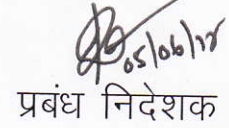 05/06/18
प्रबंध निदेशक